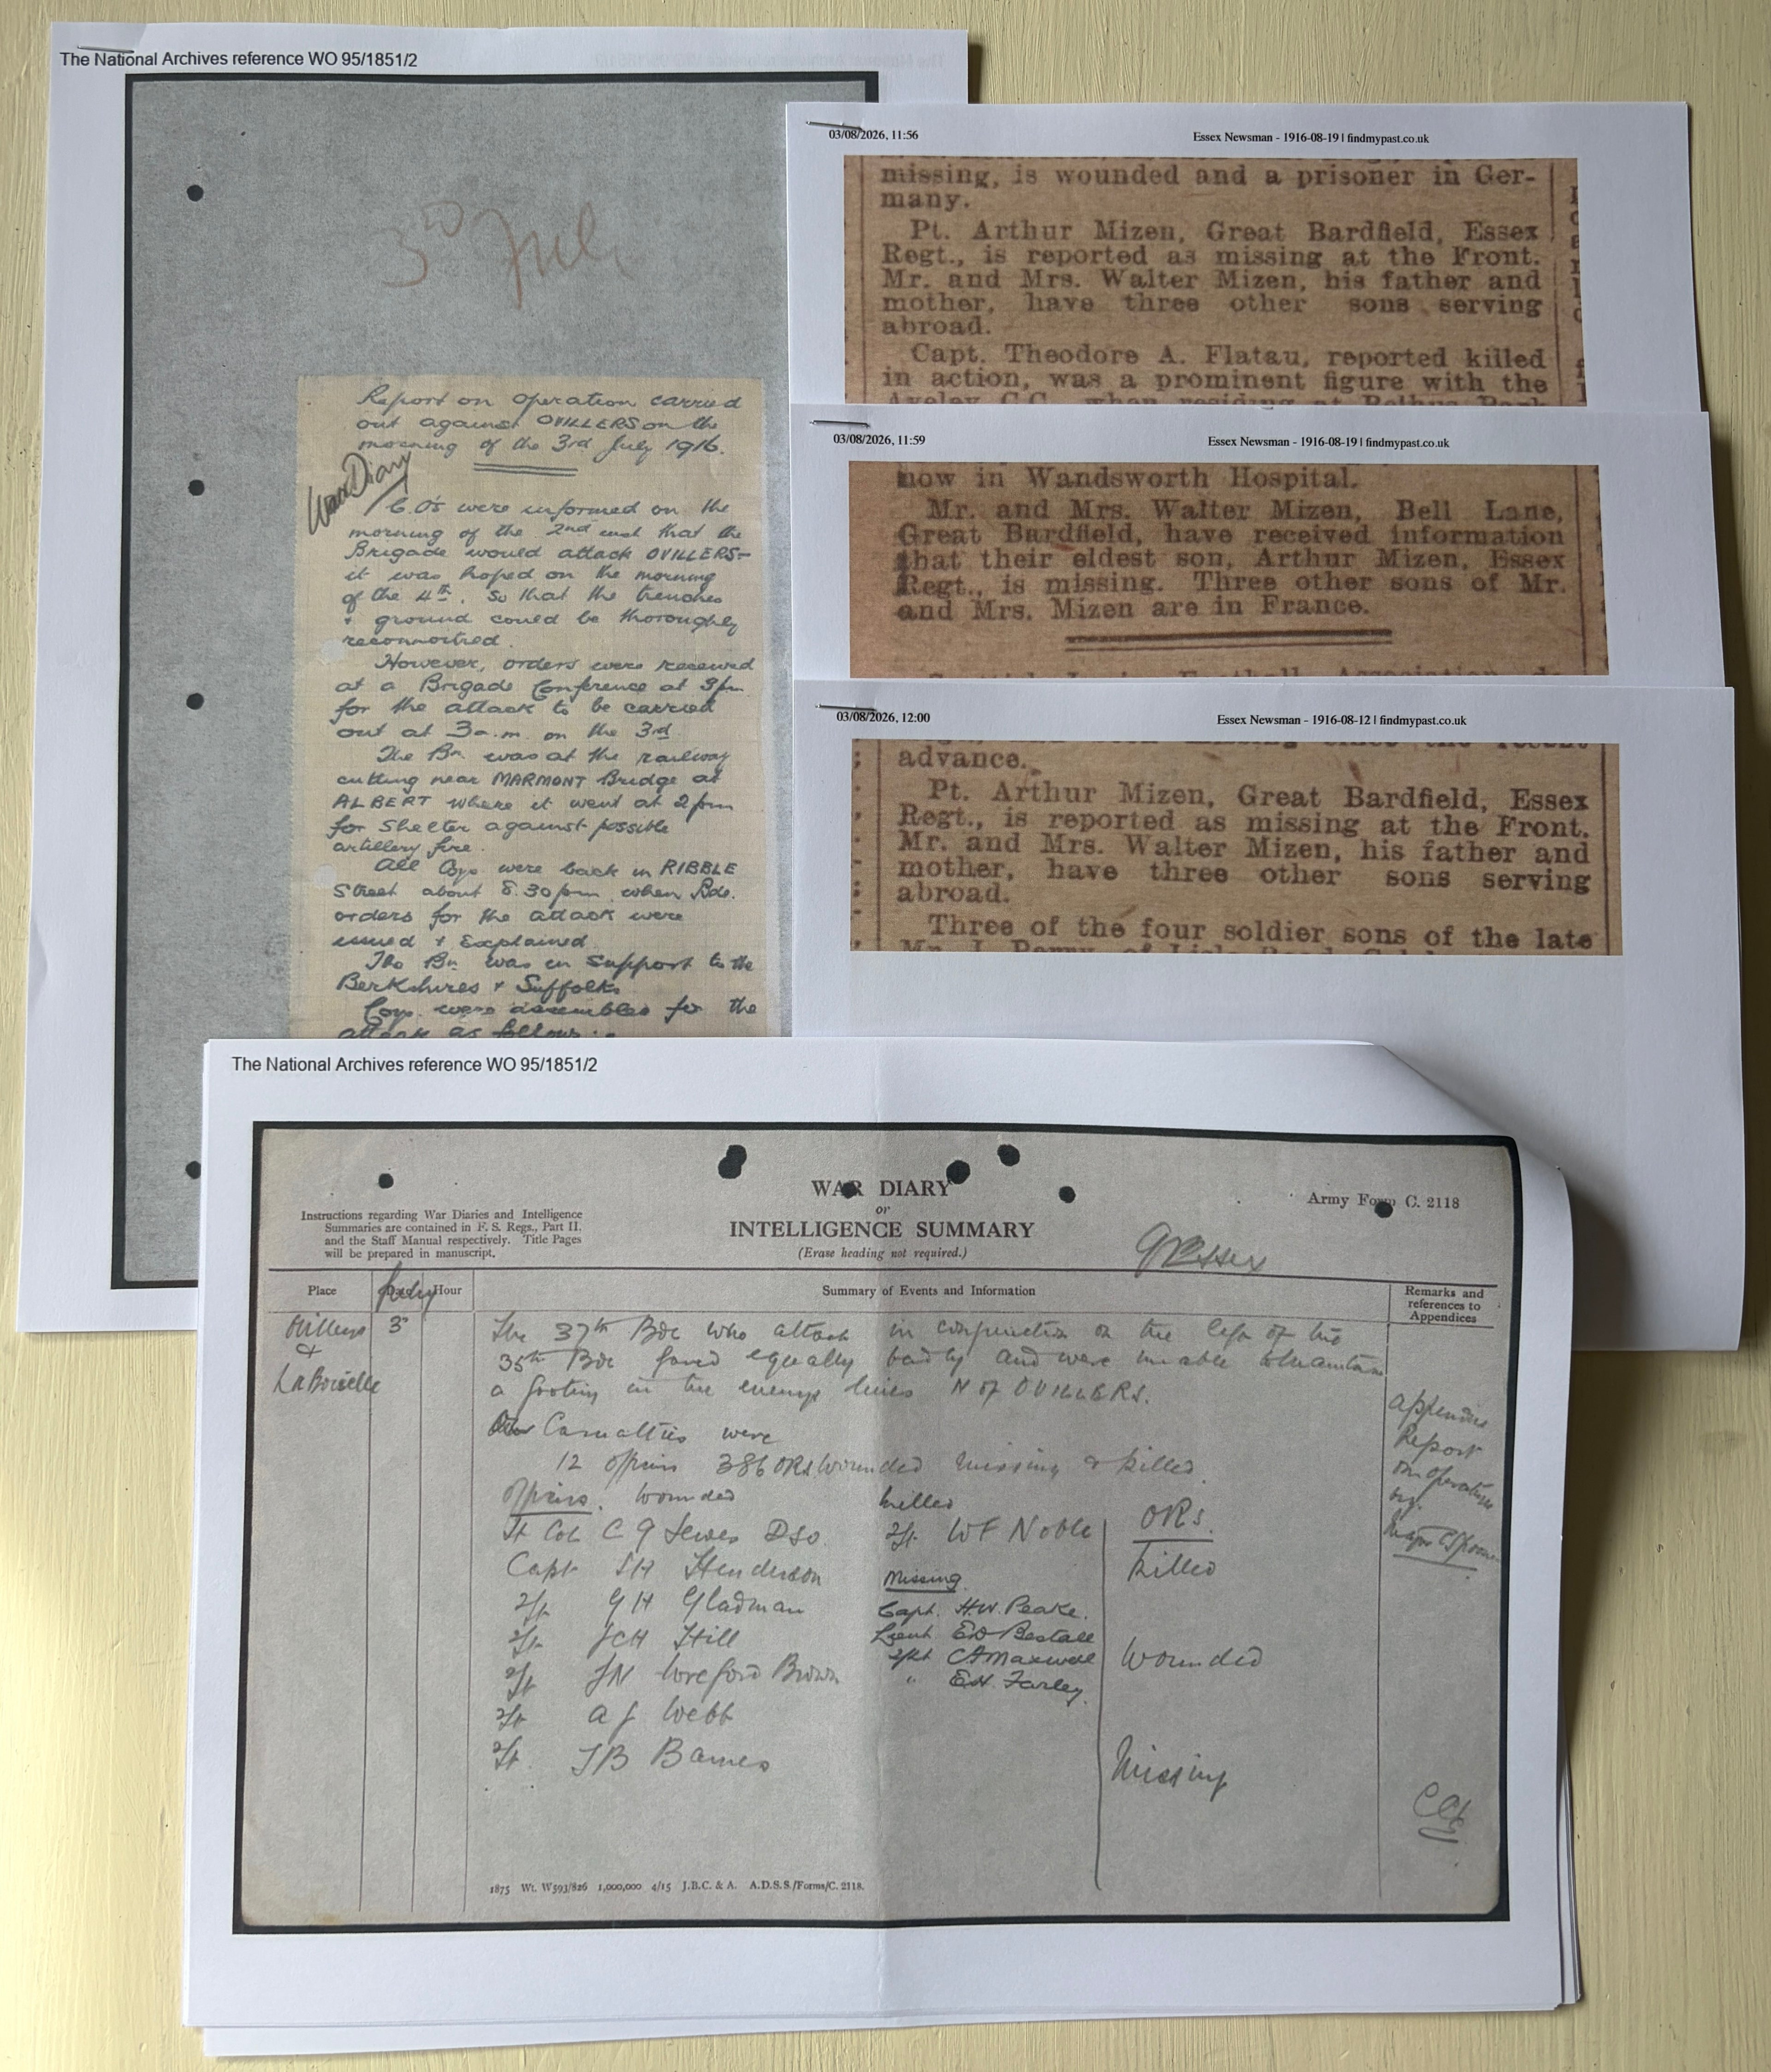 The National Archives reference WO 95/1851/2
3rd July
Report on operation carried
out against OVILLERS on the
morning of the 3rd July 1916.
War Diary
C.O's were informed on the
morning of the 2nd inst that the
Brigade would attack OVILLERS-
it was hoped on the morning
of the 4th. So that the trenches
+ ground could be thoroughly
reconnoitred.
However, orders were received
at a Brigade Conference at 3pm
for the attack to be carried
out at 3 a.m. on the 3rd.
The Bn was at the railway
cutting near MARMONT Bridge at
ALBERT where it went at 2pm
for shelter against possible
artillery fire.
All Coys were back in RIBBLE
Street about 8.30pm when Bde.
orders for the attack were
issued + Explained
The Bn was in support to the
Berkshires + Suffolks
Coys. were assembled for the
attack as follows:-
03/08/2026, 11:56
Essex Newsman - 1916-08-19 | findmypast.co.uk
missing, is wounded and a prisoner in Ger-
many.
Pt. Arthur Mizen, Great Bardfield, Essex
Regt., is reported as missing at the Front.
Mr. and Mrs. Walter Mizen, his father and
mother, have three other sons serving
abroad.
Capt. Theodore A. Flatau, reported killed
in action, was a prominent figure with the
03/08/2026, 11:59
Essex Newsman - 1916-08-19 | findmypast.co.uk
now in Wandsworth Hospital.
Mr. and Mrs. Walter Mizen, Bell Lane,
Great Bardfield, have received information
that their eldest son, Arthur Mizen, Essex
Regt., is missing. Three other sons of Mr.
and Mrs. Mizen are in France.
03/08/2026, 12:00
Essex Newsman - 1916-08-12 | findmypast.co.uk
advance.
Pt. Arthur Mizen, Great Bardfield, Essex
Regt., is reported as missing at the Front.
Mr. and Mrs. Walter Mizen, his father and
mother, have three other sons serving
abroad.
Three of the four soldier sons of the late
The National Archives reference WO 95/1851/2
WAR DIARY
or
INTELLIGENCE SUMMARY
(Erase heading not required.)
Army Form C. 2118
Instructions regarding War Diaries and Intelligence
Summaries are contained in F. S. Regs., Part II.
and the Staff Manual respectively. Title Pages
will be prepared in manuscript.
9 Essex
Place
July
Hour
Summary of Events and Information
Remarks and
references to
Appendices
Ovillers
&
La Boiselle
3
The 37th Bde who attack in conjunction on the left of the
35th Bde fared equally badly and were unable to maintain
a footing in the enemys lines N of OVILLERS.
Our Casualties were
12 officers 386 ORs wounded missing & killed.
Officers. Wounded
Lt Col C G Lewes DSO.
Capt Henderson
2/Lt G H Gladman
2/Lt Hill
2/Lt Wreford Brown
2/Lt A J Webb
2/Lt. Barnes
killed
2/Lt. W F Noble
Missing.
Capt. H.W. Peake.
Lieut. Bestall
2/Lt CA Maxwell
" E.H. Farley.
ORs.
Killed
Wounded
Missing
Appendix
Report
on operations
by
Major
1875 Wt. W593/826 1,000,000 4/15 J.B.C. & A. A.D.S.S./Forms/C. 2118.